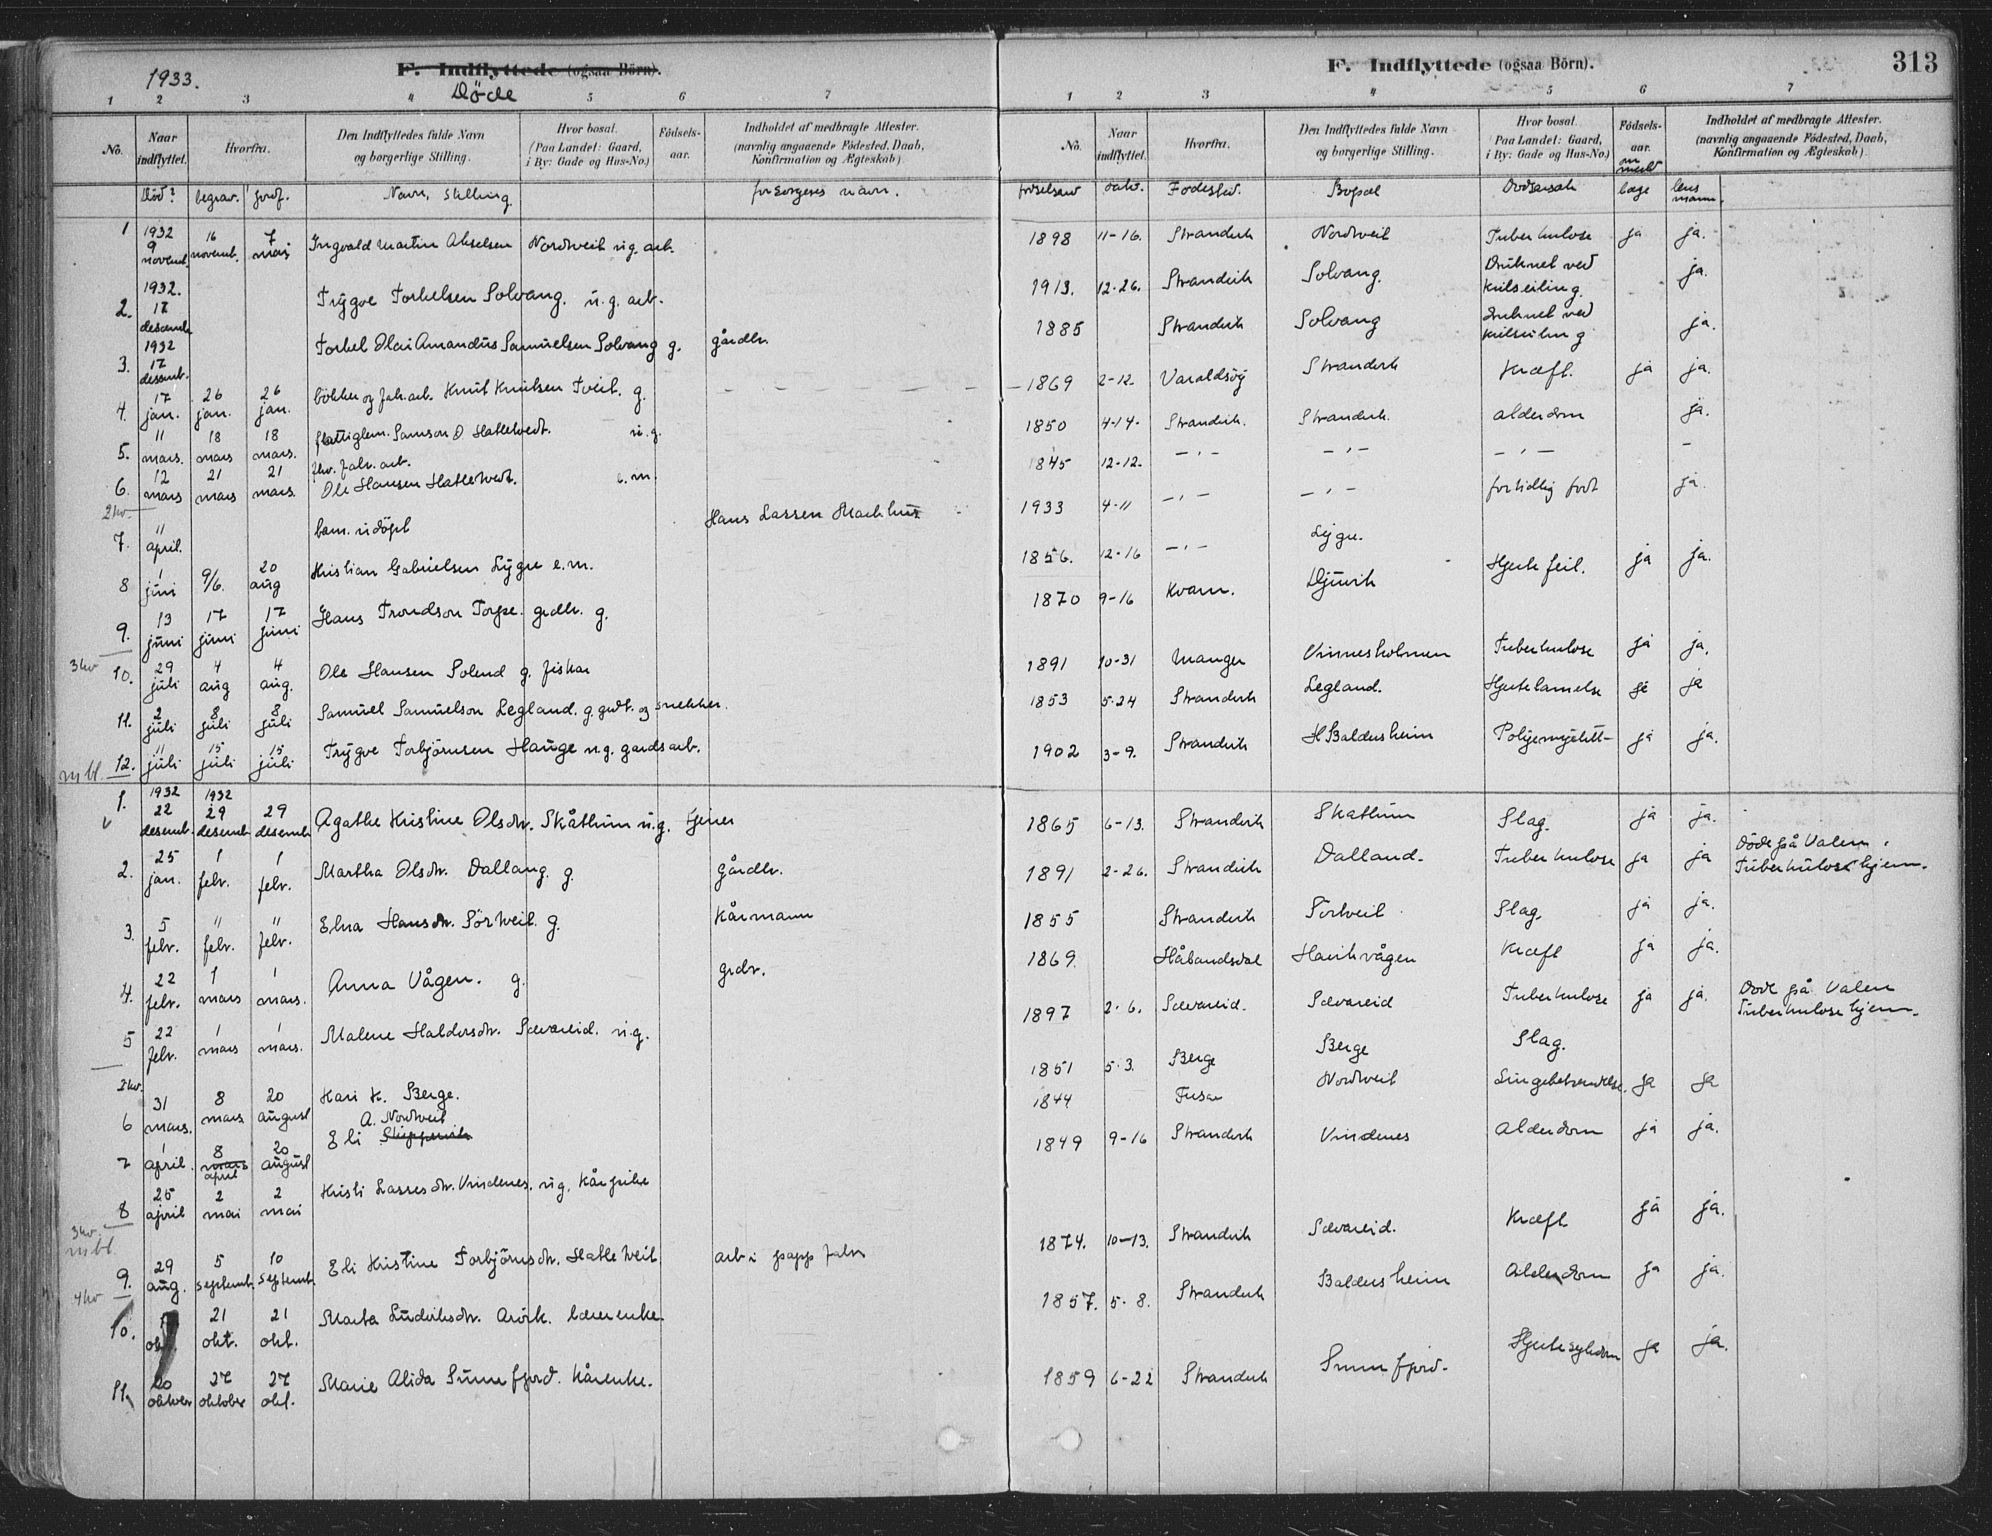 1933.
F. Indflyttede (ogsaa Börn).
Døde
1 2 3 4 5 6 7
No.
Naar indflyttet.
Hvorfra.
Den Indflyttedes fulde Navn og borgerlige Stilling.
Hvor bosat. (Paa Landet: Gaard, i By: Gade og Hus-No.)
Födsels-aar.
Indholdet af medbragte Attester. (navnlig angaaende Födested, Daab, Konfirmation og Ægteskab)
Død? begrav. jordf. Navn, stilling. forsørgeres navn.
1 1932 9 novemb. 16 novemb. 7 mai Ingvald Martin Akselsen Nordtveit ug. arb.
2. 1932. 17 desemb. Trygve Torkelsen Solvang. u.g. arb.
3. 1932 17 desemb. Torkel Olai Amandus Samuelsen Solvang g. gårdbr.
4. 17 jan. 26 jan. 26 jan. bökker og fab. arb. Knut Knutsen Tveit. g.
5. 11 mars. 18 mars 18 mars. fattiglem. Samson O Hatletvedt. u.g.
6. 12 mars 21 mars 21 mars. fhv. fabr. arb. Ole Hansen Hatletvedt. e.m.
2 kv.
7. 11 april. barn. udöpt Hans Lassen Markhus
8 1 juni 9/6. 20 aug Kristian Gabrielsen Lygre e.m.
9. 13 juni 17 juni 17 juni Hans Trondson Torpe. grdbr. g.
3 kv
10. 29 juli 4 aug 4 aug. Ole Hansen Solend g. fisker
11. 2 juli 8 juli 8 juli Samuel Samuelson Legland. g. grdb. og snekker.
12. 11 juli 15 juli 15 juli Trygve Torbjörnsen Hauge u.g. gardsarb.
m bl.
1. 1932 22 desemb. 1932 29 desemb 29 desemb Agathe Kristine Olsdtr. Skåthun u.g. tjener
2. 25 jan. 1 febr. 1 febr. Martha Olsdtr. Dalland g. gårdbr.
3. 5 febr. 11 febr. 11 febr. Elna Hansdtr. Sörtveit. g. Kårmann
4. 22 febr. 1 mars 1 mars. Anna Vågen. g. grdbr.
5 22 febr. 1 mars 1 mars. Malene Haldorsdtr. Sævareid. u.g.
2 kv.
6 31 mars. 8 mars 20 august Kari K. Berge.
7 1 april. 8 mars april 20 august Eli A. Nordtveit
8 25 april 2 mai 2 mai Kristi Lassesdtr. Vindenes. ug. Kårpike
3 kv. m bl.
9. 29 aug. 5 septemb. 10 septemb. Eli Kristine Torbjörnsdtr. Hatletveit arb. i papp fabr
4 kv
10. okt 21 okt. 21 okt. Marta Ludviksdtr. Arök. bærerenke
11. 20 oktober 27 oktober 27 okt. Marie Alida Sunnfjord. Kårenke.
313
F. Indflyttede (ogsaa Börn).
1 2 3 4 5 6 7
No.
Naar indflyttet.
Hvorfra.
Den Indflyttedes fulde Navn og borgerlige Stilling.
Hvor bosat. Paa Landet: Gaard, i By: Gade og Hus-No.)
Födsels-aar.
Indholdet af medbragte Attester. (navnlig angaaende Födested, Daab, Konfirmation og Ægteskab)
fødselsaar dato. Fødested. Bopæl Dødsårsak læge lensmann.
1898 11-16. Strandvik Nordtveit Tuberkulose ja ja.
1913. 12-26. Strandvik Solvang. Druknet ved kvilseiling ja.
1885 Strandvik Solvang Druknet ved kvilseiling ja.
1869 2-12. Varaldsöy Strandvik Kræft. ja ja.
1850 4-14. Strandvik. Strandvik. alderdom ja.
1845 12-12. — „ — — „ — — „ — —
1933 4-11 — „ — — „ — for tidlig født ja.
1856. 12-16 — „ — Lygre. Hjertefeil. ja ja.
1870 9-16 Kvam. Djuvik
1891 10-31 Manger Vinnesholmen Tuberkulose ja ja.
1853 5-24 Strandvik Legland. Hjertelamelse ja ja
1902 3-9. Strandvik H Baldersheim ja ja.
1865 6-13. Strandvik Skathun Slag. ja ja.
1891 2-26. Strandvik Dalland. Tuberkulose ja ja Døde på Valen Tuberkulosehjem.
1855 Strandvik Sörtveit Slag. ja ja.
1869. Hålandsdal Havikvågen Kræft ja ja.
1897 2-6. Sævareid. Sævareid Tuberkulose ja ja. Døde på Valen Tuberkulosehjem.
1851 5-3. Berge Berge Slag.
1844 Fusa Nordtveit Lungebetændelse. ja ja
1849 9-16 Strandvik Vindenes Alderdom ja ja.
1874. 10-13. Strandvik Sævareid. Kræft ja ja.
1857. 5-8. Strandvik Baldersheim Alderdom ja ja.
1859 6-22 Strandvik Sunnfjord. Hjertesykdom ja ja.